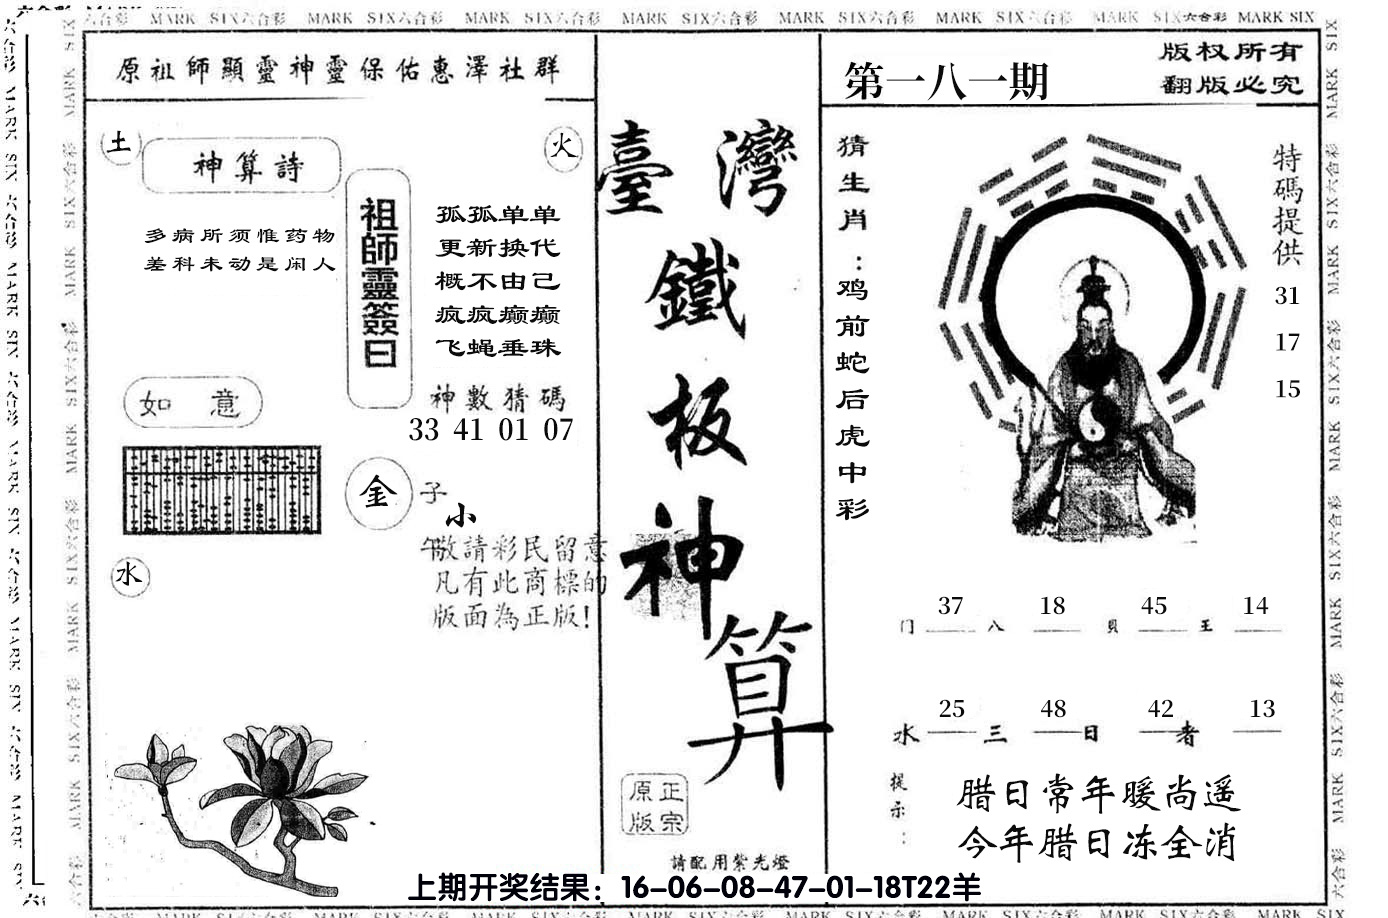 六合彩 MARK SIX六合彩 MARK SIX六合彩 MARK SIX六合彩 MARK SIX六合彩 MARK SIX六合彩 MARK SIX六合彩 MARK SIX六合彩 MARK SIX
原祖師顯靈神靈保佑惠澤社群
土
神算詩
火
多病所须惟药物
差科未动是闲人
祖師靈簽曰
孤孤单单
更新换代
概不由己
疯疯癫癫
飞蝇垂珠
神數猜碼
33 41 01 07
如意
金
子
小
午
敬請彩民留意
凡有此商標的
版面為正版!
水
臺灣
鐵
板
神
算
原正
版宗
請配用紫光燈
第一八一期
版权所有
翻版必究
猜生肖:鸡前蛇后虎中彩
特碼提供
31
17
15
门 37 八 18 貝 45 王 14
水 25 三 48 日 42 者 13
提示:
腊日常年暖尚遥
今年腊日冻全消
上期开奖结果：16-06-08-47-01-18T22羊